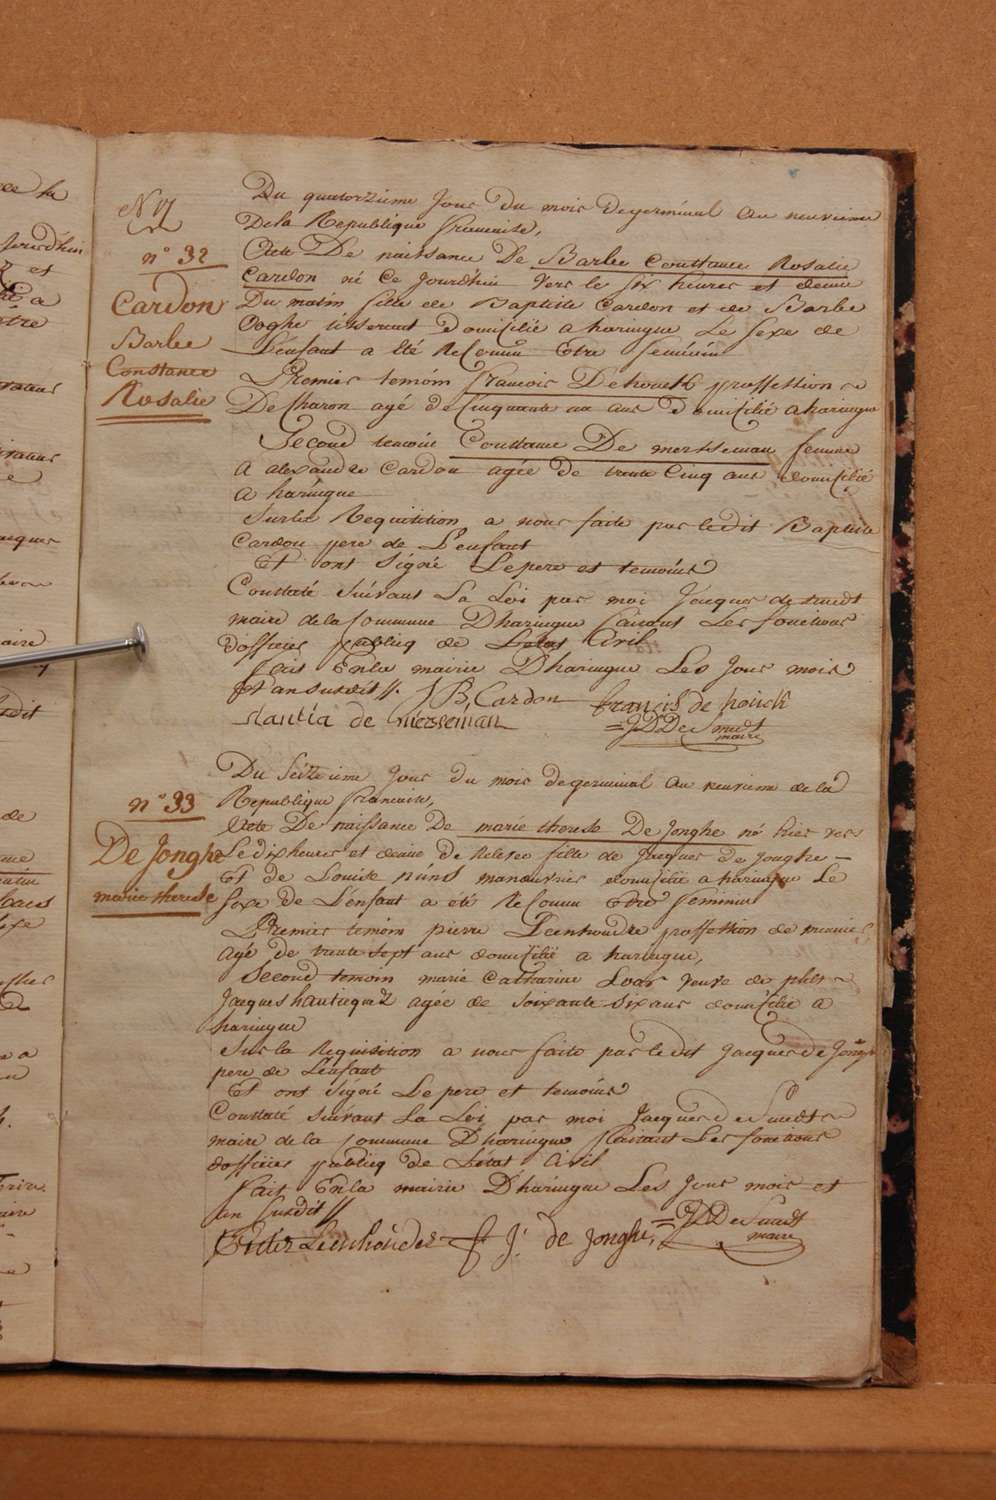 N 17
Du quatorzieme Jour du mois degerminal an neuvieme
Dela Republique francaise,
n° 32
Cardon
Barbe
Constance
Rosalie
Acte De naissance De Barbe Constance Rosalie
Cardon né Ce Jourdhui vers le six heures et demie
Du matin fille de Baptiste Cardon et de Barbe
tisserant domicilié a haringue Le sexe de
L'enfant a été Reconnu Etre feminin
Premier temoin francois Dehouck proffession
De Charon agé de Cinquante un ans domicilié a haringue
Second temoin Constance De mersseman femme
a alexandre Cardon agée de trente Cinq ans domicilié
a haringue
Surla Requisition a nous faite par ledit Baptiste
Cardon pere de L'enfant
Et ont signé Le pere et temoins
Constaté suivant La Loi par moi Jacques de smedt
maire dela Commune Dharingue faisant Les fonctions
dofficier publiq de Letat Civil
fait Enla mairie Dharingue Les Jour mois
et an susdit //. J B, Cardon francis de houck
stantia de mersseman = JD De Smedt
maire
n° 33
De Jonghe
marie therese
Du seizieme Jour du mois degerminal an neuvieme dela
Republique francaise,
Acte De naissance De marie therese De Jonghe né hier vers
Le dix heures et demie de Relevée fille de Jacques de Jonghe –
Et de Louise nuns manouvrier domicilié a haringue Le
sexe de L'enfant a eté Reconnu Etre feminin
Premier temoin pierre Leenhoudre proffession de
agé de trente sept ans domicilié a haringue,
Second temoin marie Catharine veuve de
Jacques agée de soixante six ans domicilié a
haringue
Sur la Requisition a nous faite par ledit Jacques de Jonghe
pere de L'enfant
Et ont signé Le pere et temoins
Constaté suivant La Loi par moi Jacques de Smedt
maire de la Commune Dharingue faisant Les fonctions
dofficier publiq de Létat Civil
fait Enla mairie Dharingue Les Jour mois et
an susdit //
Leenhoudes J. de Jonghe, = JD De Smedt
maire